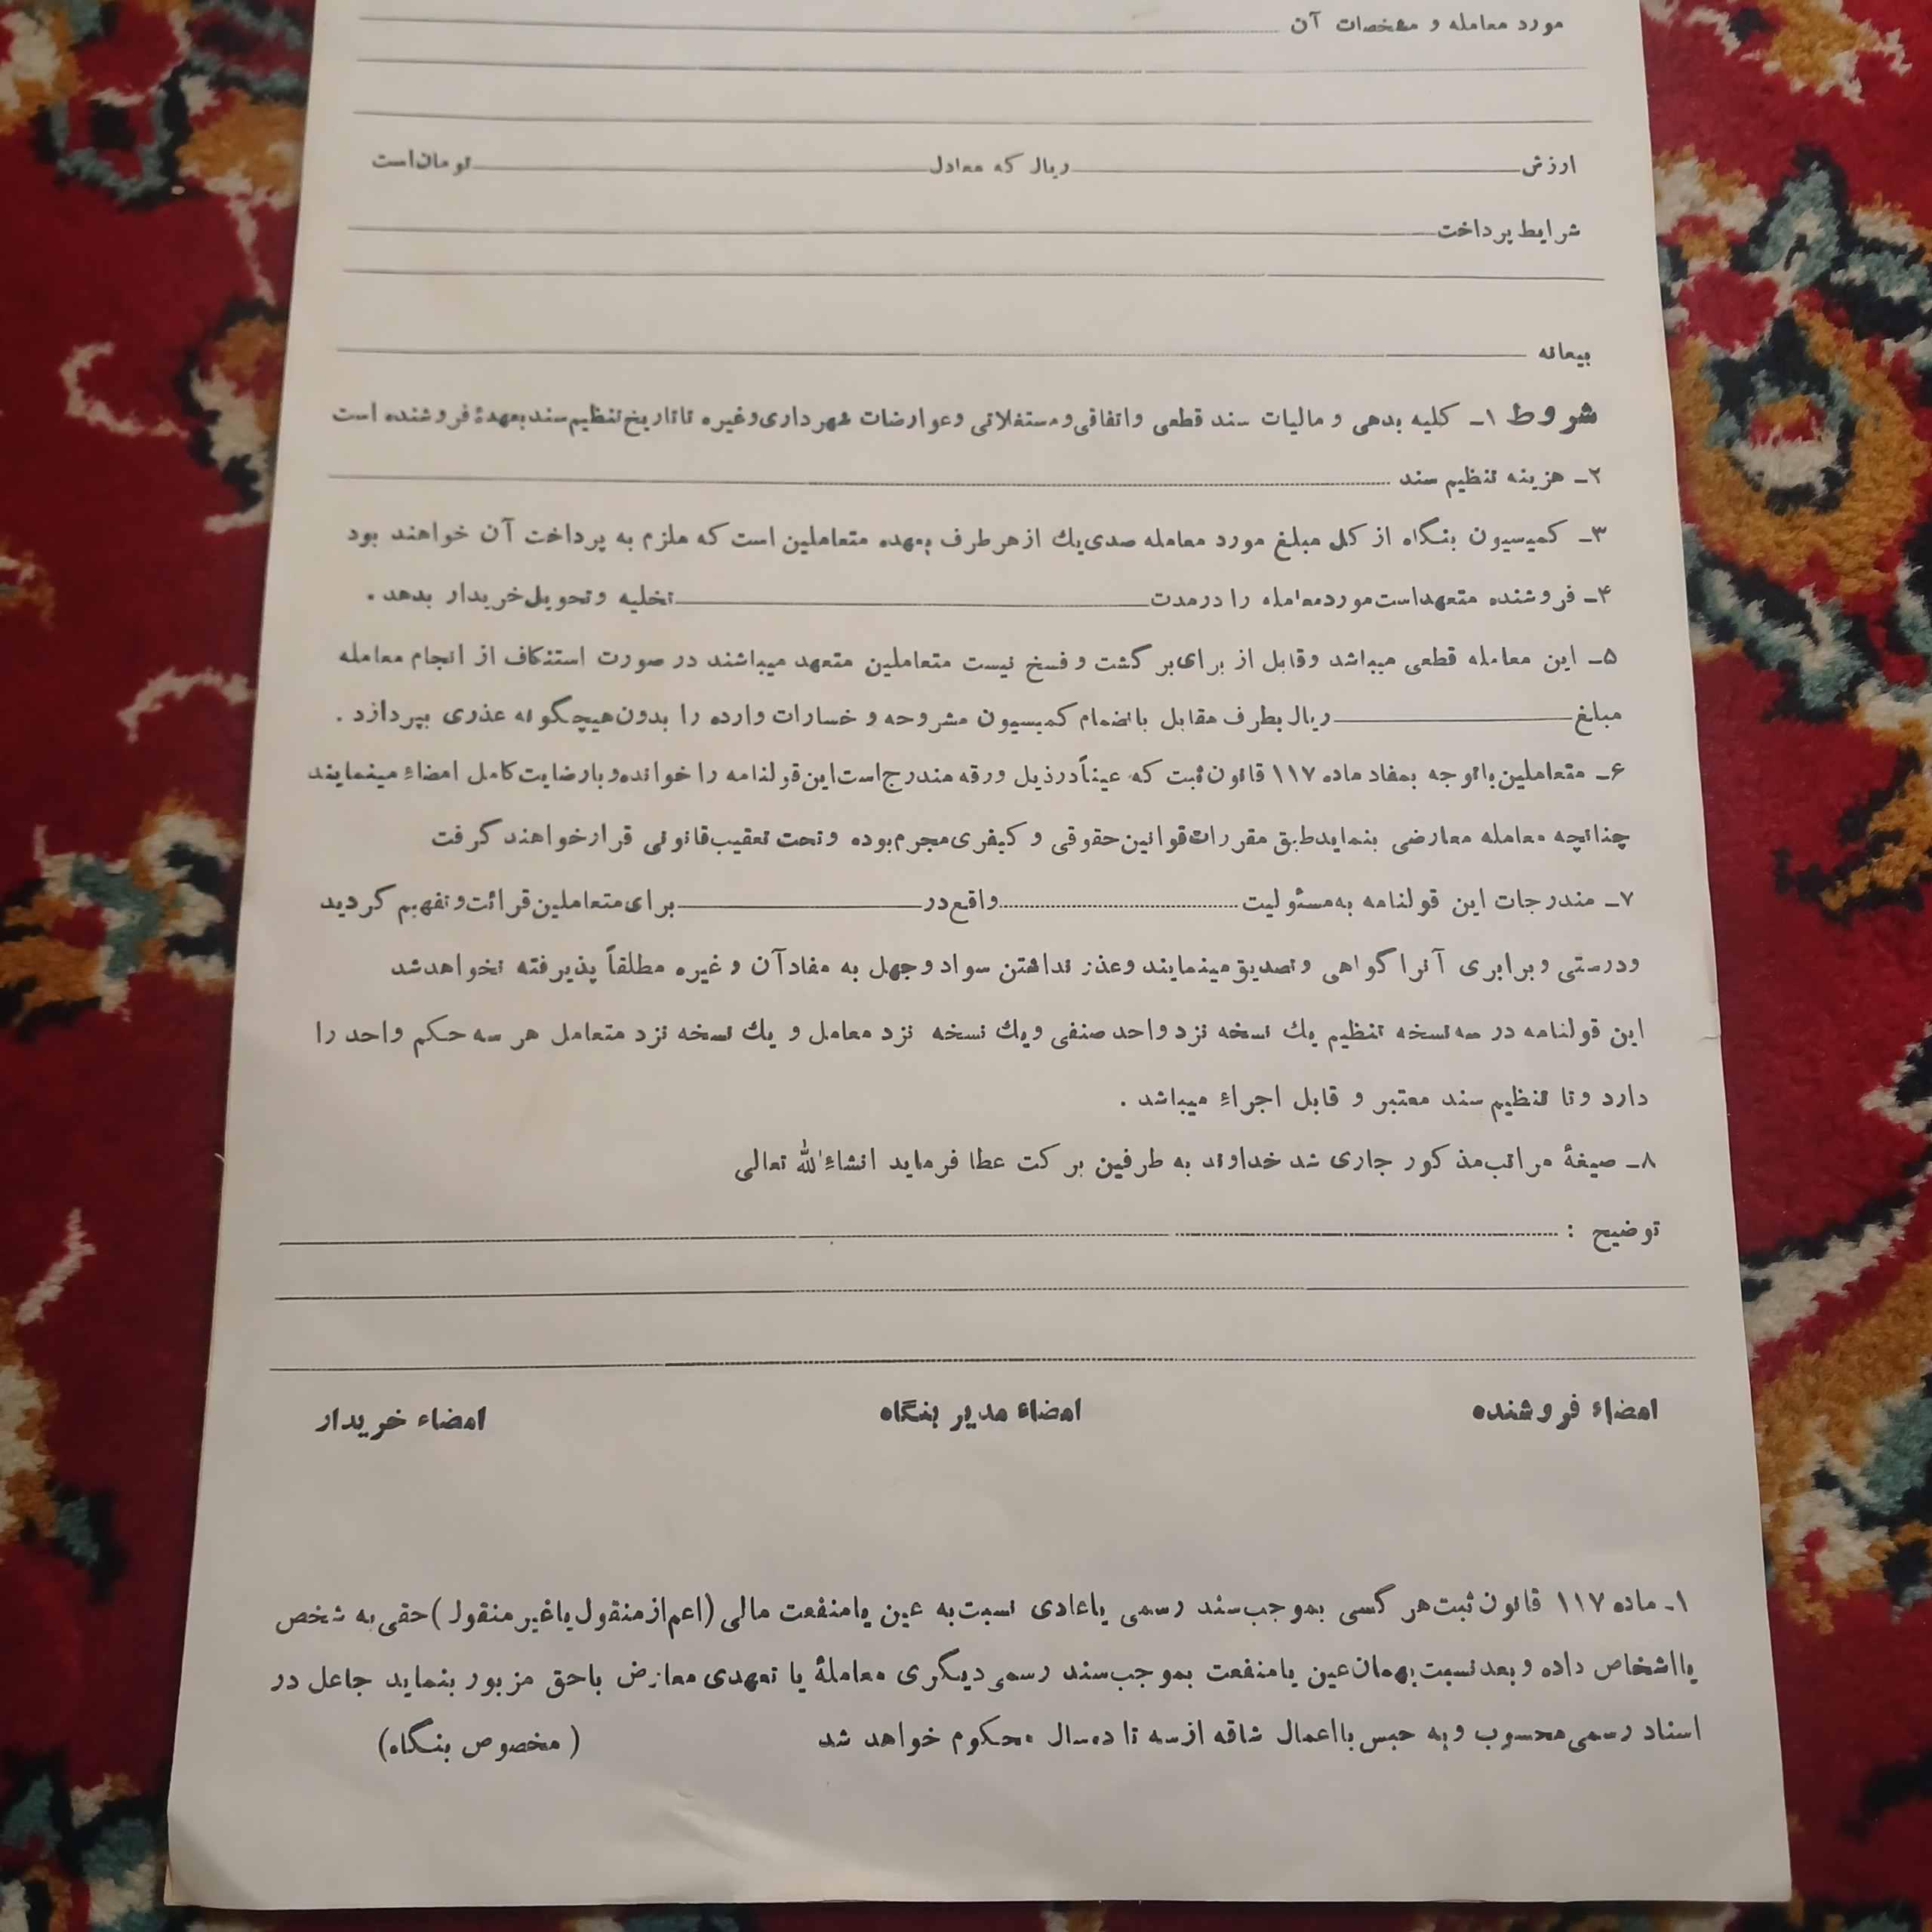 مورد معامله و مشخصات آن
ارزش ریال که معادل تومان است
شرایط پرداخت
بیعانه
شروط ۱ـ کلیه بدهی و مالیات سند قطعی و اتفاقی و مستغلاتی و عوارضات شهرداری و غیره تا تاریخ تنظیم سند بعهدهٔ فروشنده است
۲ـ هزینه تنظیم سند
۳ـ کمیسیون بنگاه از کل مبلغ مورد معامله صدی یك از هر طرف بعهده متعاملین است که ملزم به پرداخت آن خواهند بود
۴ـ فروشنده متعهد است مورد معامله را در مدت تخلیه و تحویل خریدار بدهد .
۵ـ این معامله قطعی میباشد و قابل از برای برگشت و فسخ نیست متعاملین متعهد میباشند در صورت استنکاف از انجام معامله
مبلغ ریال بطرف مقابل بانضمام کمیسیون مشروحه و خسارات وارده را بدون هیچگونه عذری بپردازد .
۶ـ متعاملین باتوجه بمفاد ماده ۱۱۷ قانون ثبت که عیناً در ذیل ورقه مندرج است این قولنامه را خوانده و با رضایت کامل امضاءِ مینمایند
چنانچه معامله معارضی بنماید طبق مقررات قوانین حقوقی و کیفری مجرم بوده و تحت تعقیب قانونی قرار خواهند گرفت
۷ـ مندرجات این قولنامه به مسئولیت واقع در برای متعاملین قرائت و تفهیم گردید
و درستی و برابری آنرا گواهی و تصدیق مینمایند و عذر نداشتن سواد و جهل به مفاد آن و غیره مطلقاً پذیرفته نخواهد شد
این قولنامه در سه نسخه تنظیم یك نسخه نزد واحد صنفی و یك نسخه نزد معامل و یك نسخه نزد متعامل هر سه حکم واحد را
دارد و تا تنظیم سند معتبر و قابل اجراءِ میباشد .
۸ـ صیغهٔ مراتب مذکور جاری شد خداوند به طرفین برکت عطا فرماید انشاءِالله تعالی
توضیح :
امضاء فروشنده امضاء مدیر بنگاه امضاء خریدار
۱ـ ماده ۱۱۷ قانون ثبت هر کسی بموجب سند رسمی یا عادی نسبت به عین یا منفعت مالی (اعم از منقول یا غیر منقول) حقی به شخص
یا اشخاص داده و بعد نسبت بهمان عین یا منفعت بموجب سند رسمی دیگری معاملهٔ یا تعهدی معارض باحق مزبور بنماید جاعل در
اسناد رسمی محسوب و به حبس بااعمال شاقه از سه تا ده سال محکوم خواهد شد (مخصوص بنگاه)